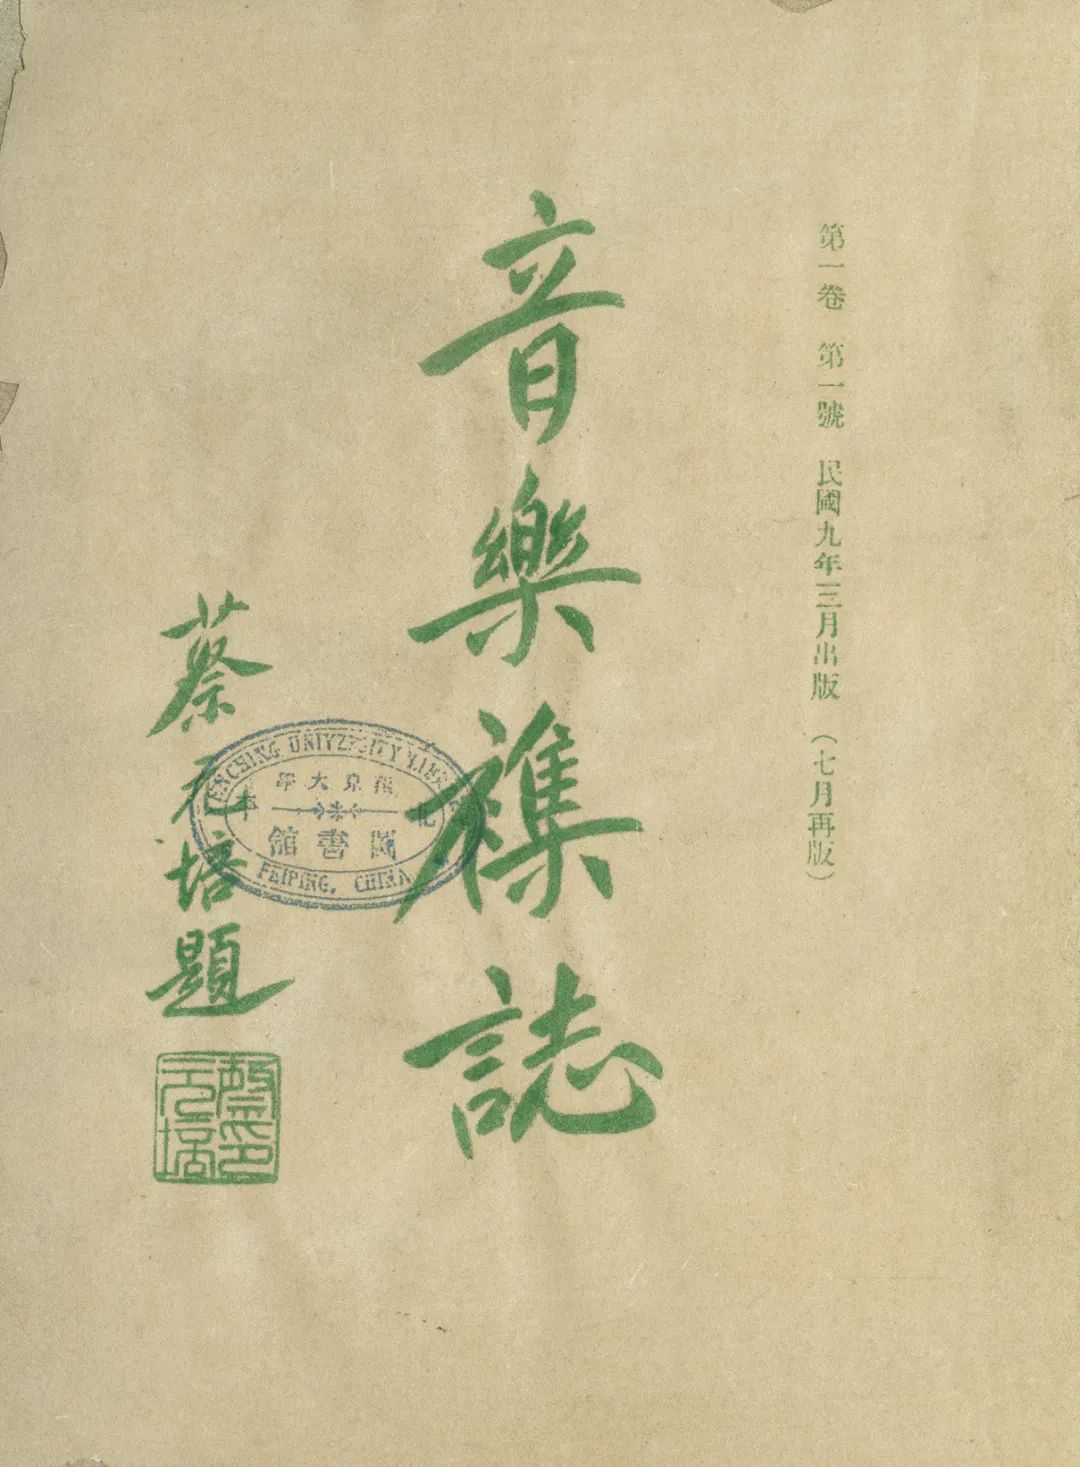 第一卷 第一號 民國九年三月出版 (七月再版)
音樂襍誌
蔡元培題
YENCHING UNIVERSITY LIBRARY
燕京大學
北平
圖書館
PEIPING, CHINA
蔡印
元培